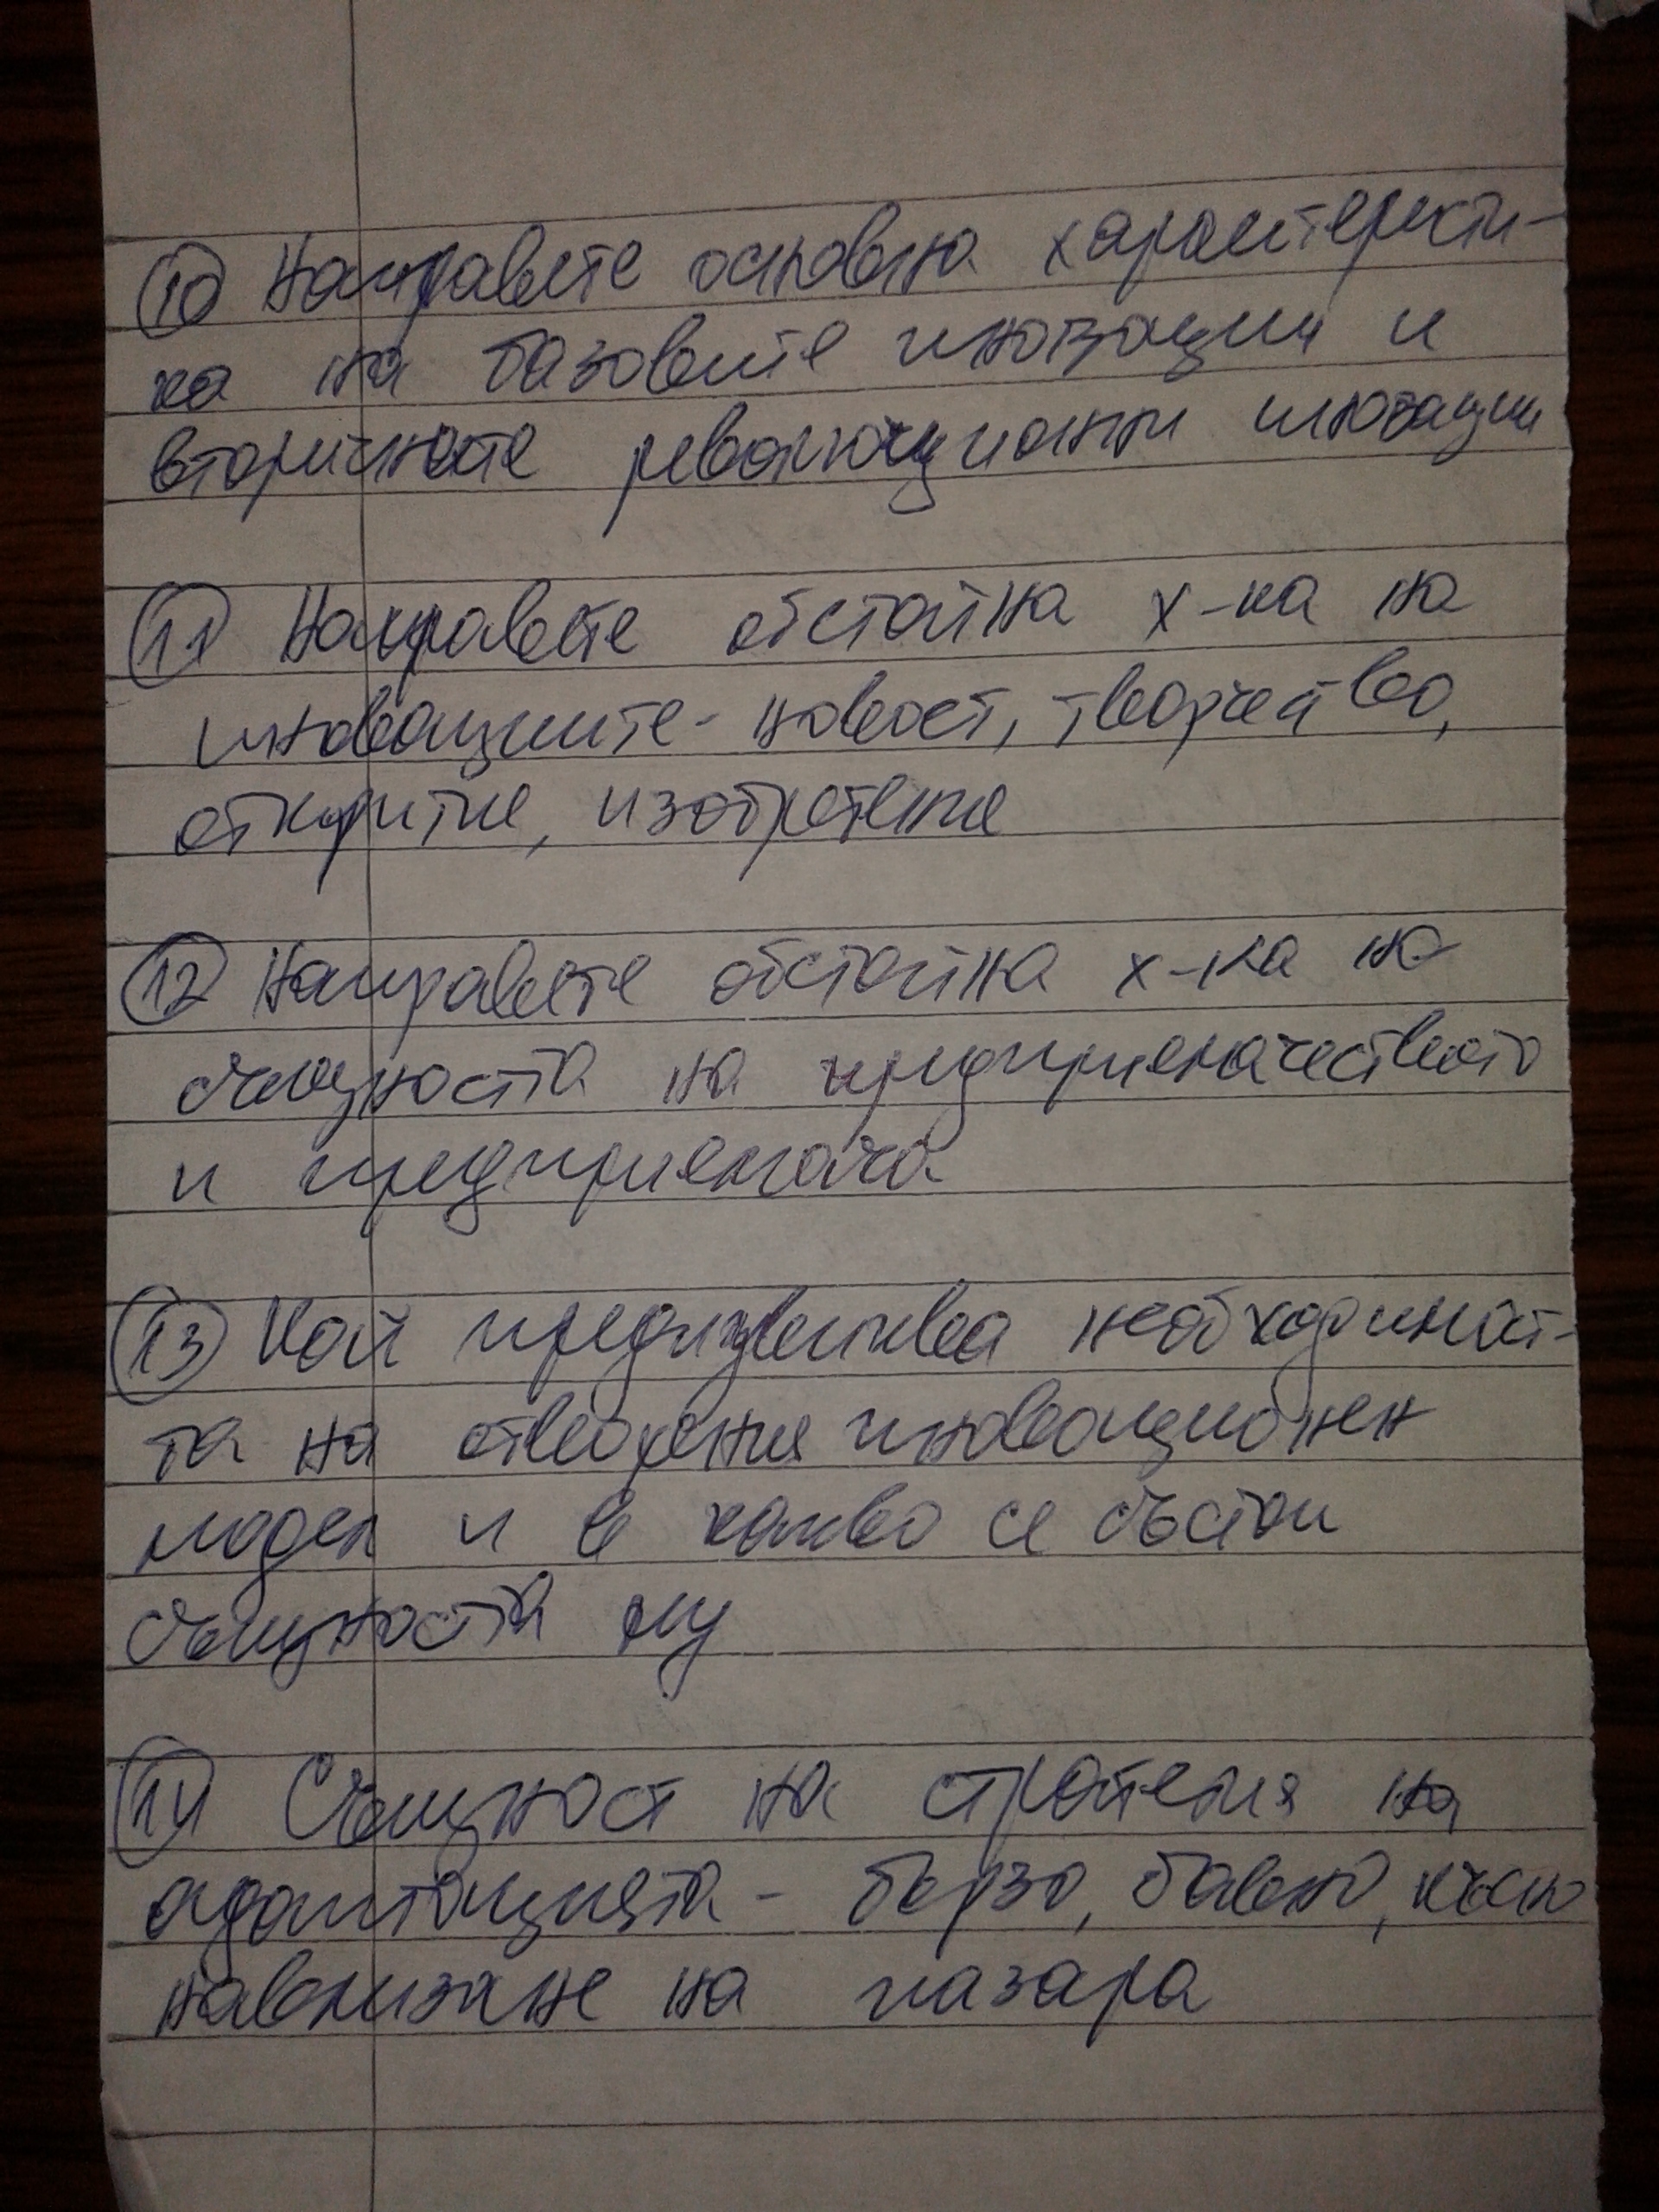 10 Направете основна характеристи-
ка на базовите иновации и
вторичните революционни иновации
11 Направете обстойна х-ка на
иновациите - новост, творчество,
откритие, изобретение
12 Направете обстойна х-ка на
същността на предприемачеството
и предприемача
13 Кой предизвиква необходимост-
та на отворения иновационен
модел и в какво се състои
същността му
14 Същност на стратегия на
адаптацията - бързо, бавно, късно
навлизане на пазара